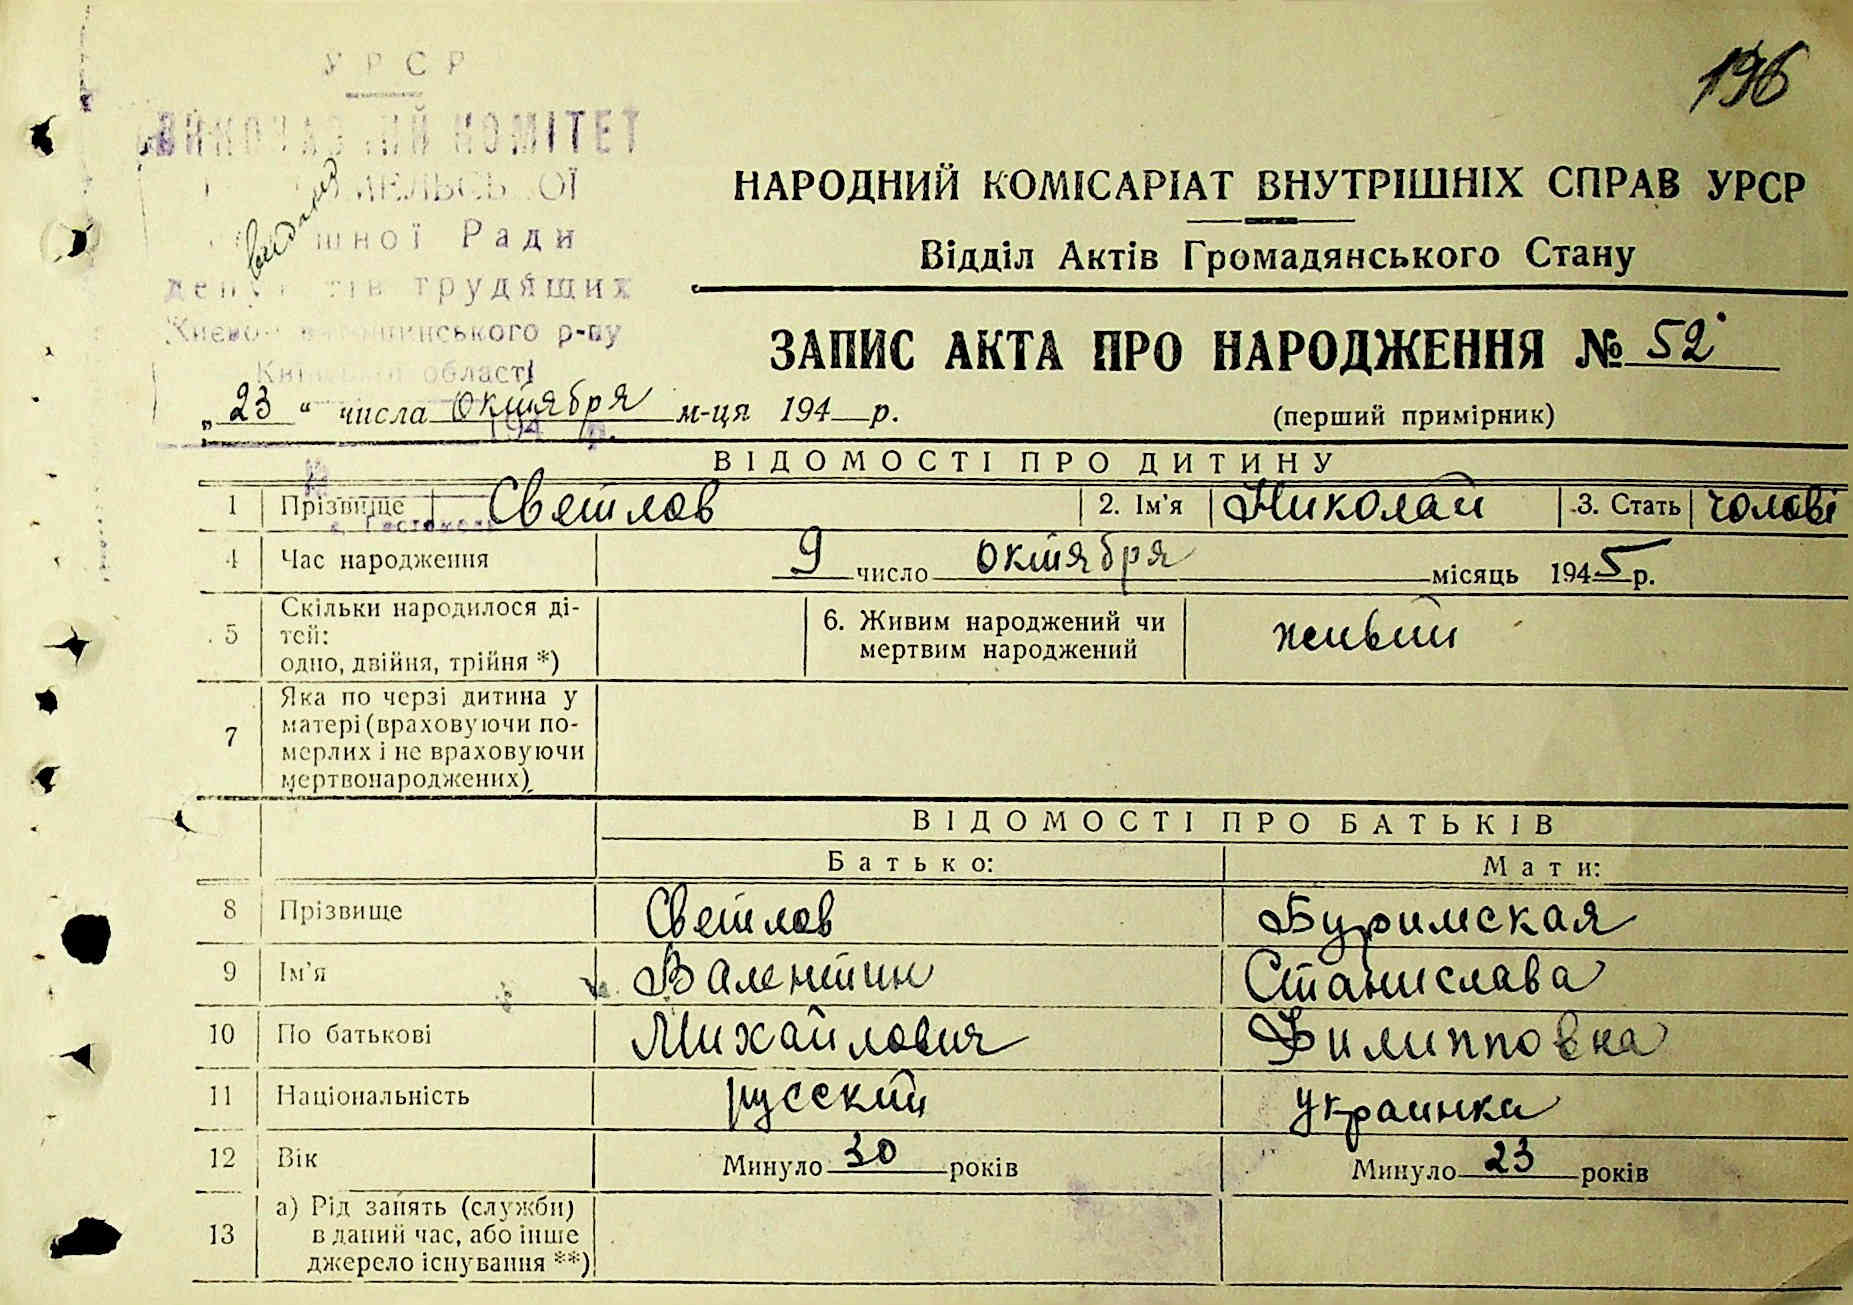 УРСР
196
КОМІТЕТ
НАРОДНИЙ КОМІСАРІАТ ВНУТРІШНІХ СПРАВ УРСР
Ради
Відділ Актів Громадянського Стану
трудящих
р-ну
ЗАПИС АКТА ПРО НАРОДЖЕННЯ № 52
області
„23“ числа октября м-ця 194 р.
(перший примірник)
ВІДОМОСТІ ПРО ДИТИНУ
1 Прізвище Светлов 2. Ім'я Николай 3. Стать чолові
4 Час народження 9 число октября місяць 1945 р.
5 Скільки народилося ді-
тей:
одно, двійня, трійня *)
6. Живим народжений чи
мертвим народжений живый
7 Яка по черзі дитина у
матері (враховуючи по-
мерлих і не враховуючи
мертвонароджених)
ВІДОМОСТІ ПРО БАТЬКІВ
Батько: Мати:
8 Прізвище Светлов Буримская
9 Ім'я Валентин Станислава
10 По батькові Михайлович Филипповна
11 Національність русский украинка
12 Вік Минуло 30 років Минуло 23 років
13 а) Рід занять (служби)
в даний час, або інше
джерело існування **)